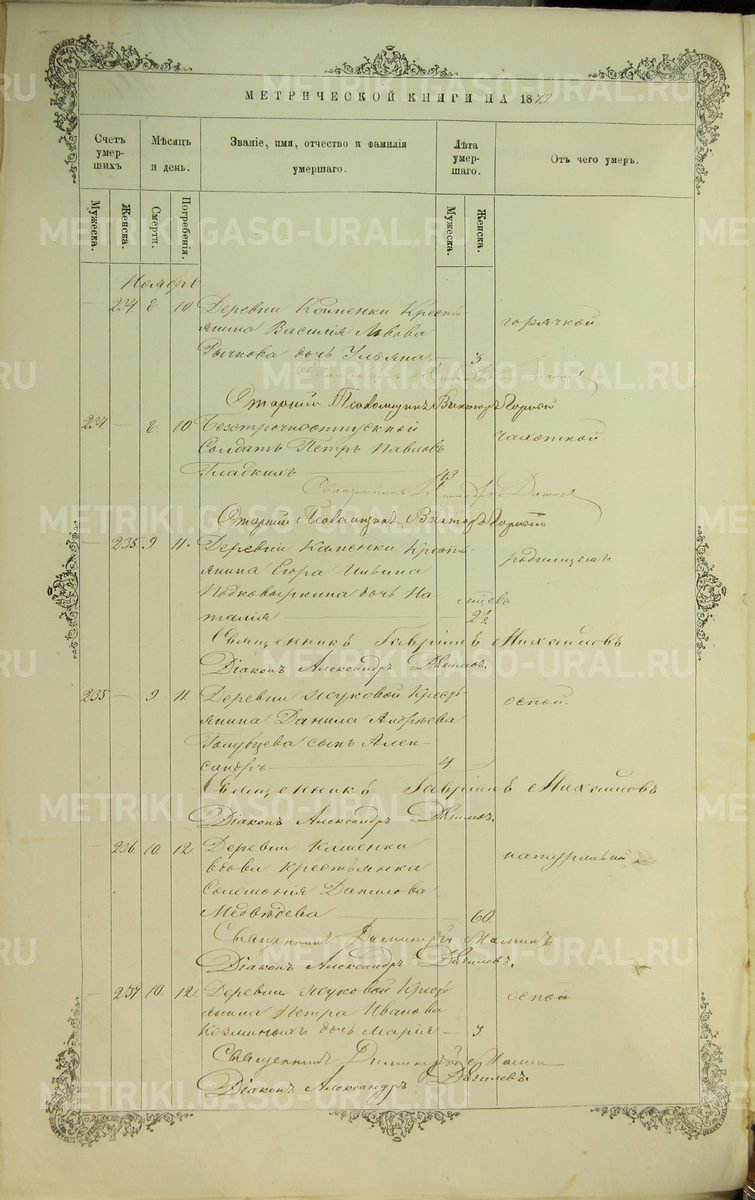 МЕТРИЧЕСКОЙ КНИГИ НА 1873
Счетъ умер-шихъ
Мѣсяцъ и день.
Званіе, имя, отчество и фамилія умершаго.
Лѣта умер-шаго.
Отъ чего умеръ.
Мужеска.
Женска.
Смерти.
Погребенія.
Мужеска.
Женска.
METRIKI.GASO-URAL.RU
Ноябрь
— 234 8. 10 Деревни Каменки Кресть-
янина Василія Львова горячкой
Рычкова дочь Ульяна. — 3
Старшій Псаломщикъ Викторъ
234 — 8. 10 Безсрочноотпускной чахоткой.
Солдатъ Петръ Павловъ
Гладкихъ —
Священникъ
Старшій Псаломщикъ Викторъ
— 235. 9. 11. Деревни Каменки Кресть-
янина Егора Ильина родимцемъ
Подковыркина дочь На- мѣсяцевъ
талія — 2½
Священникъ Гавріилъ Михайловъ
Діаконъ Александръ
235 — 9. 11 Деревни Жуковой Кресть- оспой.
янина Данила Андреева
Голубцева сынъ Алек-
сандръ — 4.
Священникъ Гавріилъ Михайловъ
Діаконъ Александръ
236. 10. 12. Деревни Каменки натуральной
вдова крестьянка
Соломонія Данилова
Медвѣдева — 60
Священникъ Димитрій
Діаконъ Александръ
— 237 10. 12 Деревни Жуковой Кресть- оспой
янина Петра Иванова
дочь Марія — 3
Священникъ Димитрій
Діаконъ Александръ